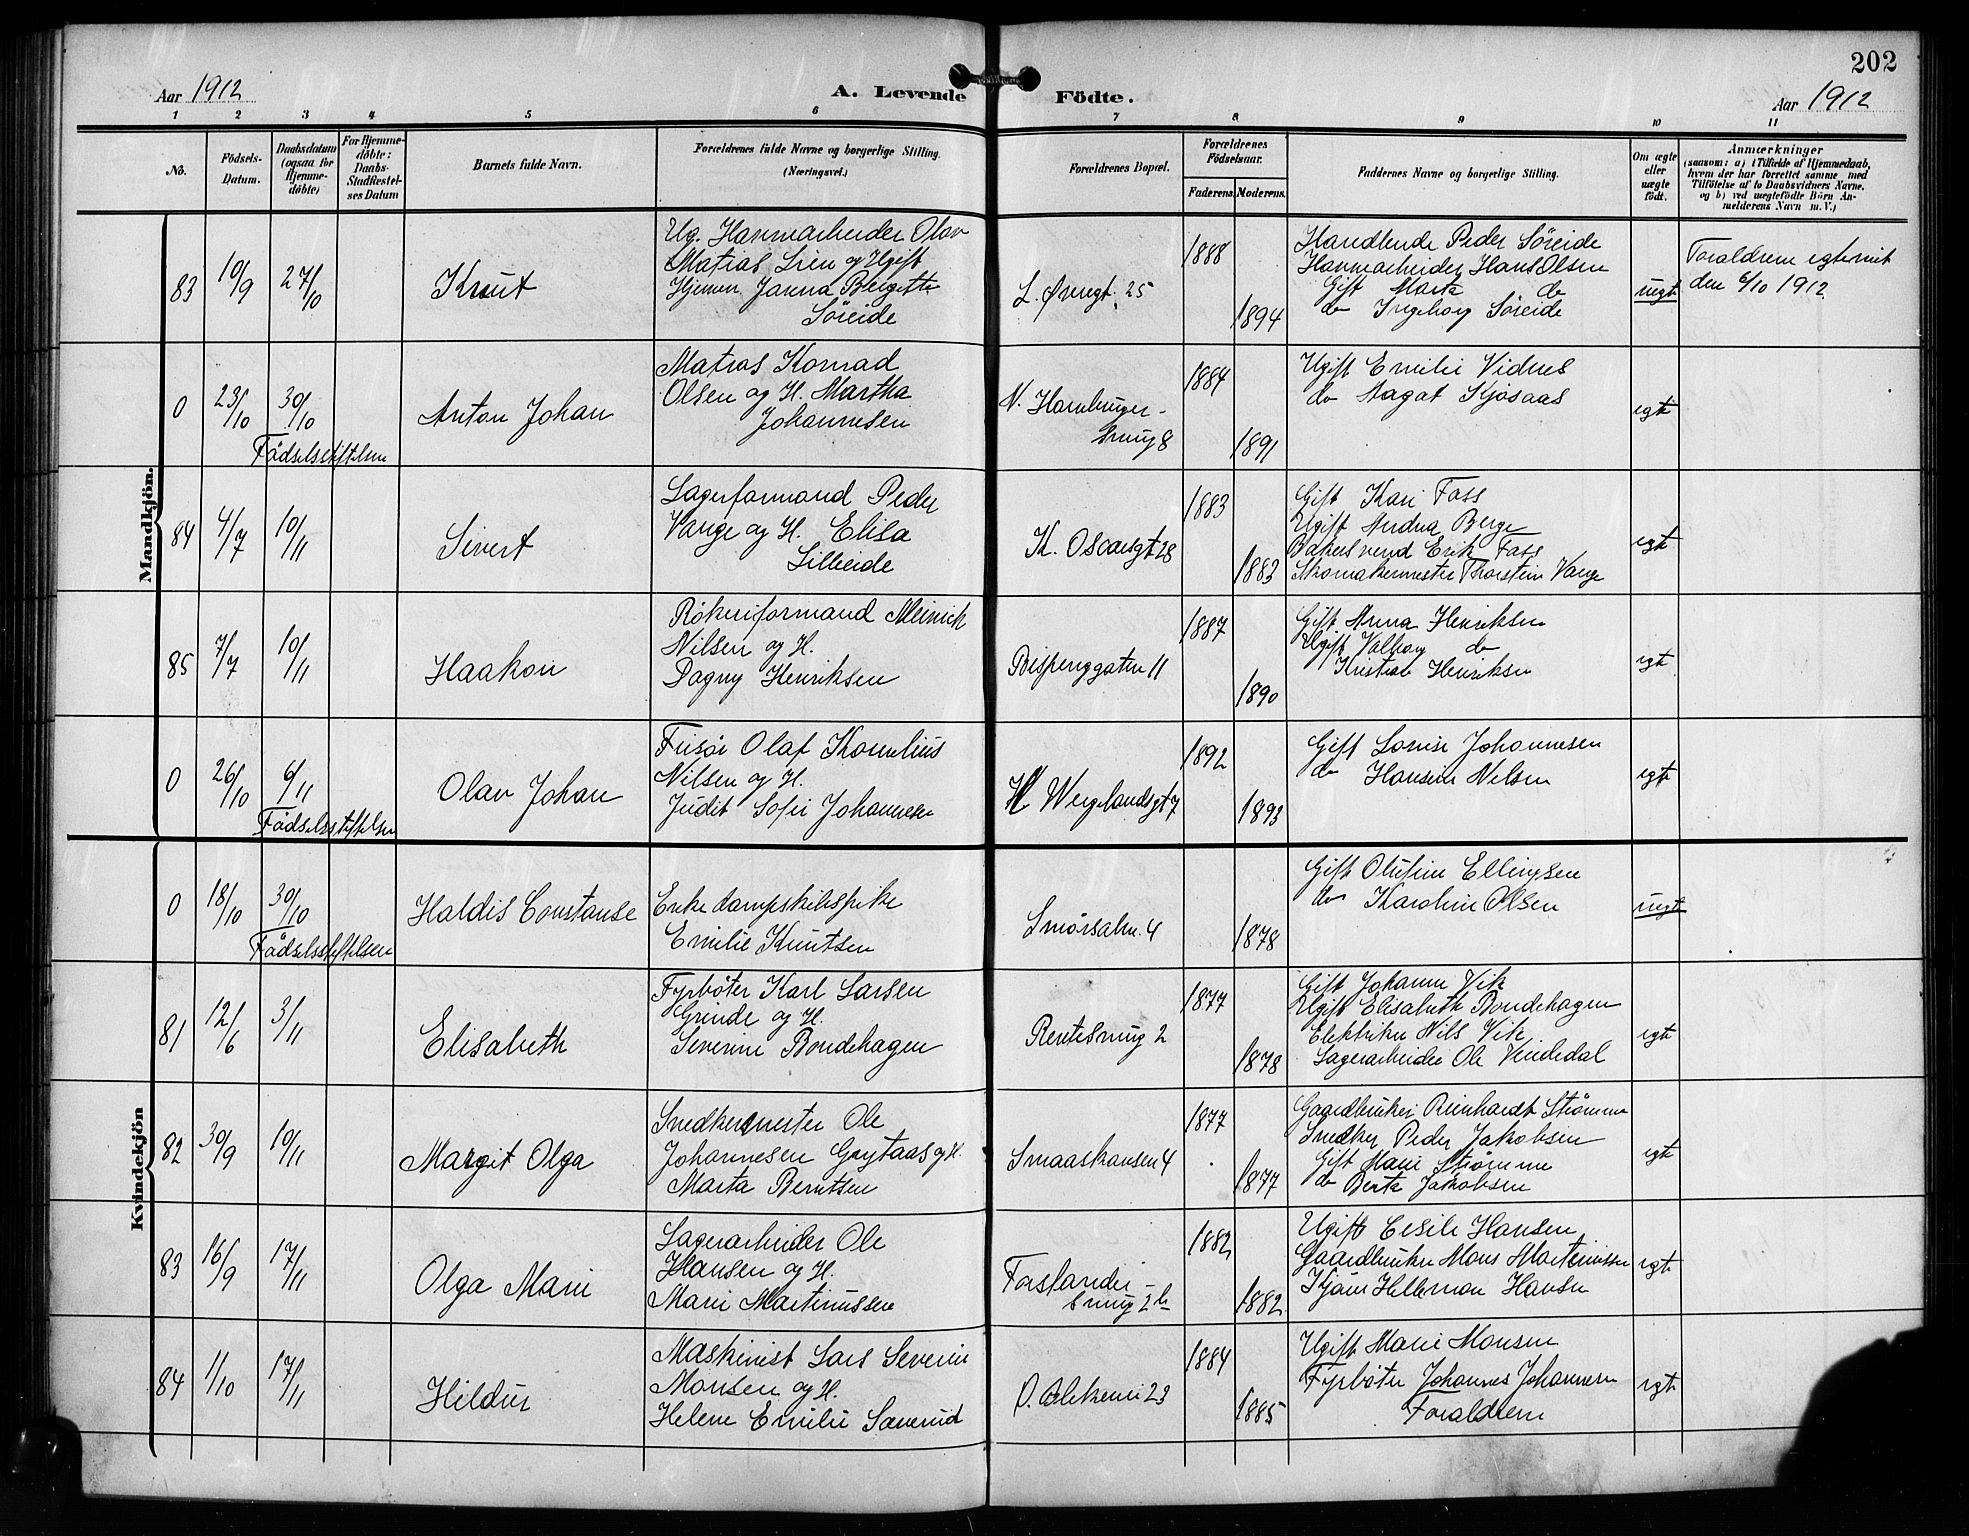 202
Aar 1912
A. Levende Födte.
Aar 1912
1 2 3 4 5 6 7 8 9 10 11
No.
Födsels-Datum.
Daabsdatum (ogsaa for Hjemme-döbte)
For Hjemme-döbte: Daabs-Stadfæstel-ses Datum
Barnets fulde Navn.
Forældrenes fulde Navne og borgerlige Stilling.
(Næringsvei.)
Forældrenes Bopæl.
Forældrenes Födselsaar.
Faderens. Moderens.
Faddernes Navne og borgerlige Stilling.
Om ægte eller uægte født.
Anmærkninger
(saasom: a) i Tilfælde af Hjemmedaab,
hvem der har forrettet samme med
Tilföielse af to Daabsvidners Navne,
og b) ved uægtefödte Börn An-
melderens Navn m. V.)
Mandkjön.
83 10/9 27/10 Knut
Ug. Havnearbeider Olav
Matias Lien og Ugift
Hjemm. Janna Bergitte
Søreide
L. Øvregt. 25
1888
1894
Handlende Peder Søreide
Havnearbeider Hans Olsen
Gift Marta do
do Ingeborg Søreide
uegt
Foraldrene egteviet
den 6/10 1912
0 23/10 30/10 Anton Johan
Fødselsstiftelsen
Matias Konrad
Olsen og H. Martha
Johannesen
N. Hamburger-
smug 8
1884
1891
Ugift Emilie Vidnes
do Aagot Kjøsaas
egte
84 4/7 10/11 Sivert
Lagerformand Peder
Vange og H. Elisa
Lilleeide
K. Oscarsgt 28
1883
1883
Gift Kari Fass
Ugift Andrea Berge
Bakersvend Erik Fass
Skomakermester Thorstein Vange
egte
85 7/7 10/11 Haakon
Røkeriformand Meinich
Nilsen og H.
Dagny Henriksen
Bispenggaten 11
1887
1890
Gift Anna Henriksen
Ugift Valborg do
Kristian Henriksen
egte
0 26/10 6/11 Olav Johan
Fødselsstiftelsen
Frisør Olaf Kornelius
Nilsen og H.
Judit Sofie Johannesen
H Wergelandsgt 7
1892
1893
Gift Lovise Johannesen
do Hansine Nilsen
egte
Kvindekjön
0 18/10 30/10 Haldis Constanse
Fødselsstiftelsen
Enke dampskibspike
Emilie Knutsen
Smørsalm. 4
1878
Gift Olufine Ellingsen
do Karoline Olsen
uegt
81 12/6 3/11 Elisabeth
Fyrbøter Karl Larsen
Grinde og H.
Severine Bondehagen
Reutesmug 2
1877
1878
Gift Johanne Vik
Ugift Elisabeth Bondehagen
Elektriker Nils Vik
Lagerarbeider Ole Vindedal
egte
82 30/9 10/11 Margit Olga
Snedkermester Ole
Johannesen Grytaas og H.
Marta Berntsen
Smaaskansen 4
1877
1877
Gaardbruker Reinhardt Strømme
Snedker Peder Jakobsen
Gift Marie Strømme
do Berta Jakobsen
egte
83 16/9 17/11 Olga Marie
Lagerarbeider Ole
Hansen og H.
Marie Martinussen
Forstander
smug 2 b
1882
1882
Ugift Cesilie Hansen
Gaardbruker Mons Martinussen
Hansen
egte
84 1/10 17/11 Hildur
Maskinist Lars Severin
Monsen og H.
Helene Emilie Sanerud
Ø. Blekevei 23
1884
1885
Ugift Marie Monsen
Fyrbøter Johannes Johannesen
Foraldrene
egte